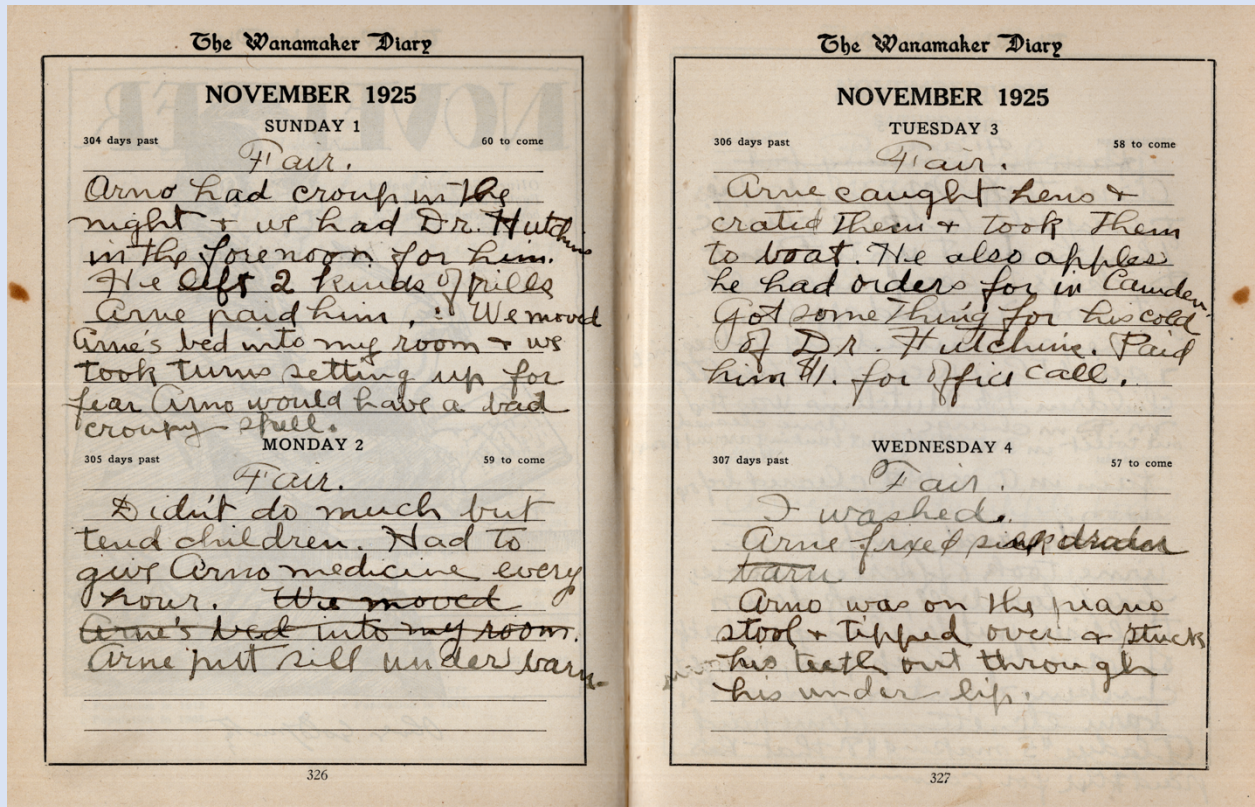 The Wanamaker Diary
NOVEMBER 1925
SUNDAY 1
304 days past 60 to come
Fair.
Arno had croup in the
night + we had Dr. Hutchins
in the forenoon for him.
He left 2 kinds of pills
Arne paid him. We moved
Arne's bed into my room + we
took turns setting up for
fear Arno would have a bad
croupy spell.
MONDAY 2
305 days past 59 to come
Fair.
Didn't do much but
tend children. Had to
give Arno medicine every
hour. We moved
Arne's bed into my room.
Arne put sill under barn.
326
The Wanamaker Diary
NOVEMBER 1925
TUESDAY 3
306 days past 58 to come
Fair.
Arne caught hens +
crated them + took them
to boat. He also apples
he had orders for in Camden.
Got some thing for his cold
of Dr. Hutchins. Paid
him $1. for office call.
WEDNESDAY 4
307 days past 57 to come
Fair.
I washed.
Arne fixed sink drain
barn.
Arno was on the piano
stool + tipped over & stuck
his teeth out through
his under lip.
327